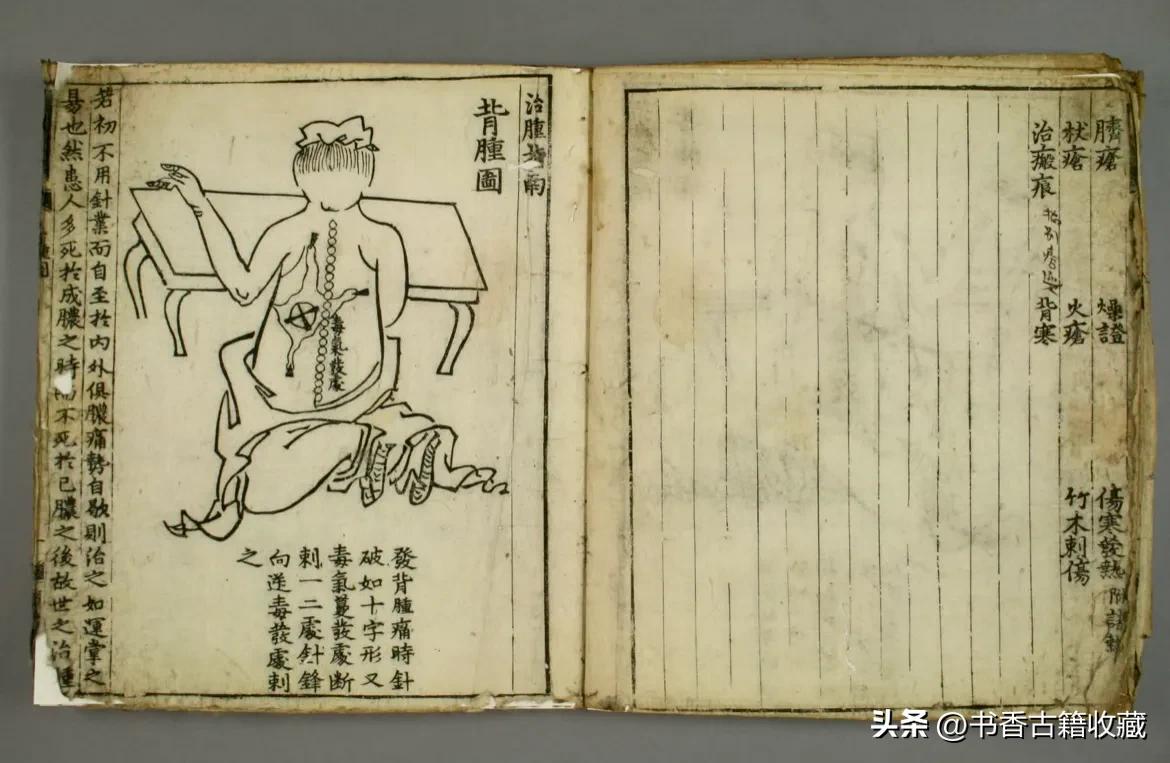 臍瘡 燥證 傷寒發熱
杖瘡 火瘡 竹木刺傷
治瘢痕 背寒
治腫指南
背腫圖
毒氣發處
發背腫痛時針
破如十字形又
毒氣蔓發處断
刺一二處針鋒
向逆毒發處刺
之
若初不用針業而自至於内外俱膿痛勢自歇則治之如運掌之
易也然患人多死於成膿之時而不死於已膿之後故世之治腫
头条 @书香古籍收藏